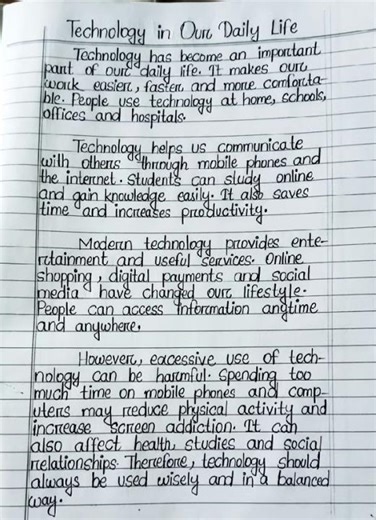 Technology in Our Daily Life
Technology has become an important
part of our daily life. It makes our
work easier, faster and more comforta-
ble. People use technology at home, schools,
offices and hospitals.
Technology helps us communicate
with others through mobile phones and
the internet. Students can study online
and gain knowledge easily. It also saves
time and increases productivity.
Modern technology provides ente-
rtainment and useful services. Online
shopping, digital payments and social
media have changed our lifestyle.
People can access information anytime
and anywhere.
However, excessive use of tech-
nology can be harmful. Spending too
much time on mobile phones and comp-
uters may reduce physical activity and
increase screen addiction. It can
also affect health, studies and social
relationships. Therefore, technology should
always be used wisely and in a balanced
way.